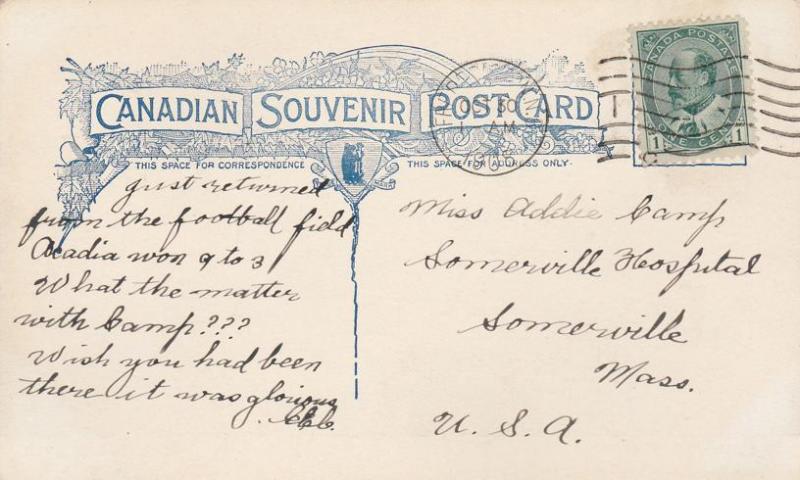 CANADIAN SOUVENIR POST CARD
THIS SPACE FOR CORRESPONDENCE
THIS SPACE FOR ADDRESS ONLY.
OCT 30
AM
CANADA POSTAGE
ONE CENT
1 1
Just returned
from the football field
Acadia won 9 to 3
What the matter
with Camp???
Wish you had been
there it was glorious
Miss Addie Camp
Somerville Hospital
Somerville
Mass.
U. S. A.